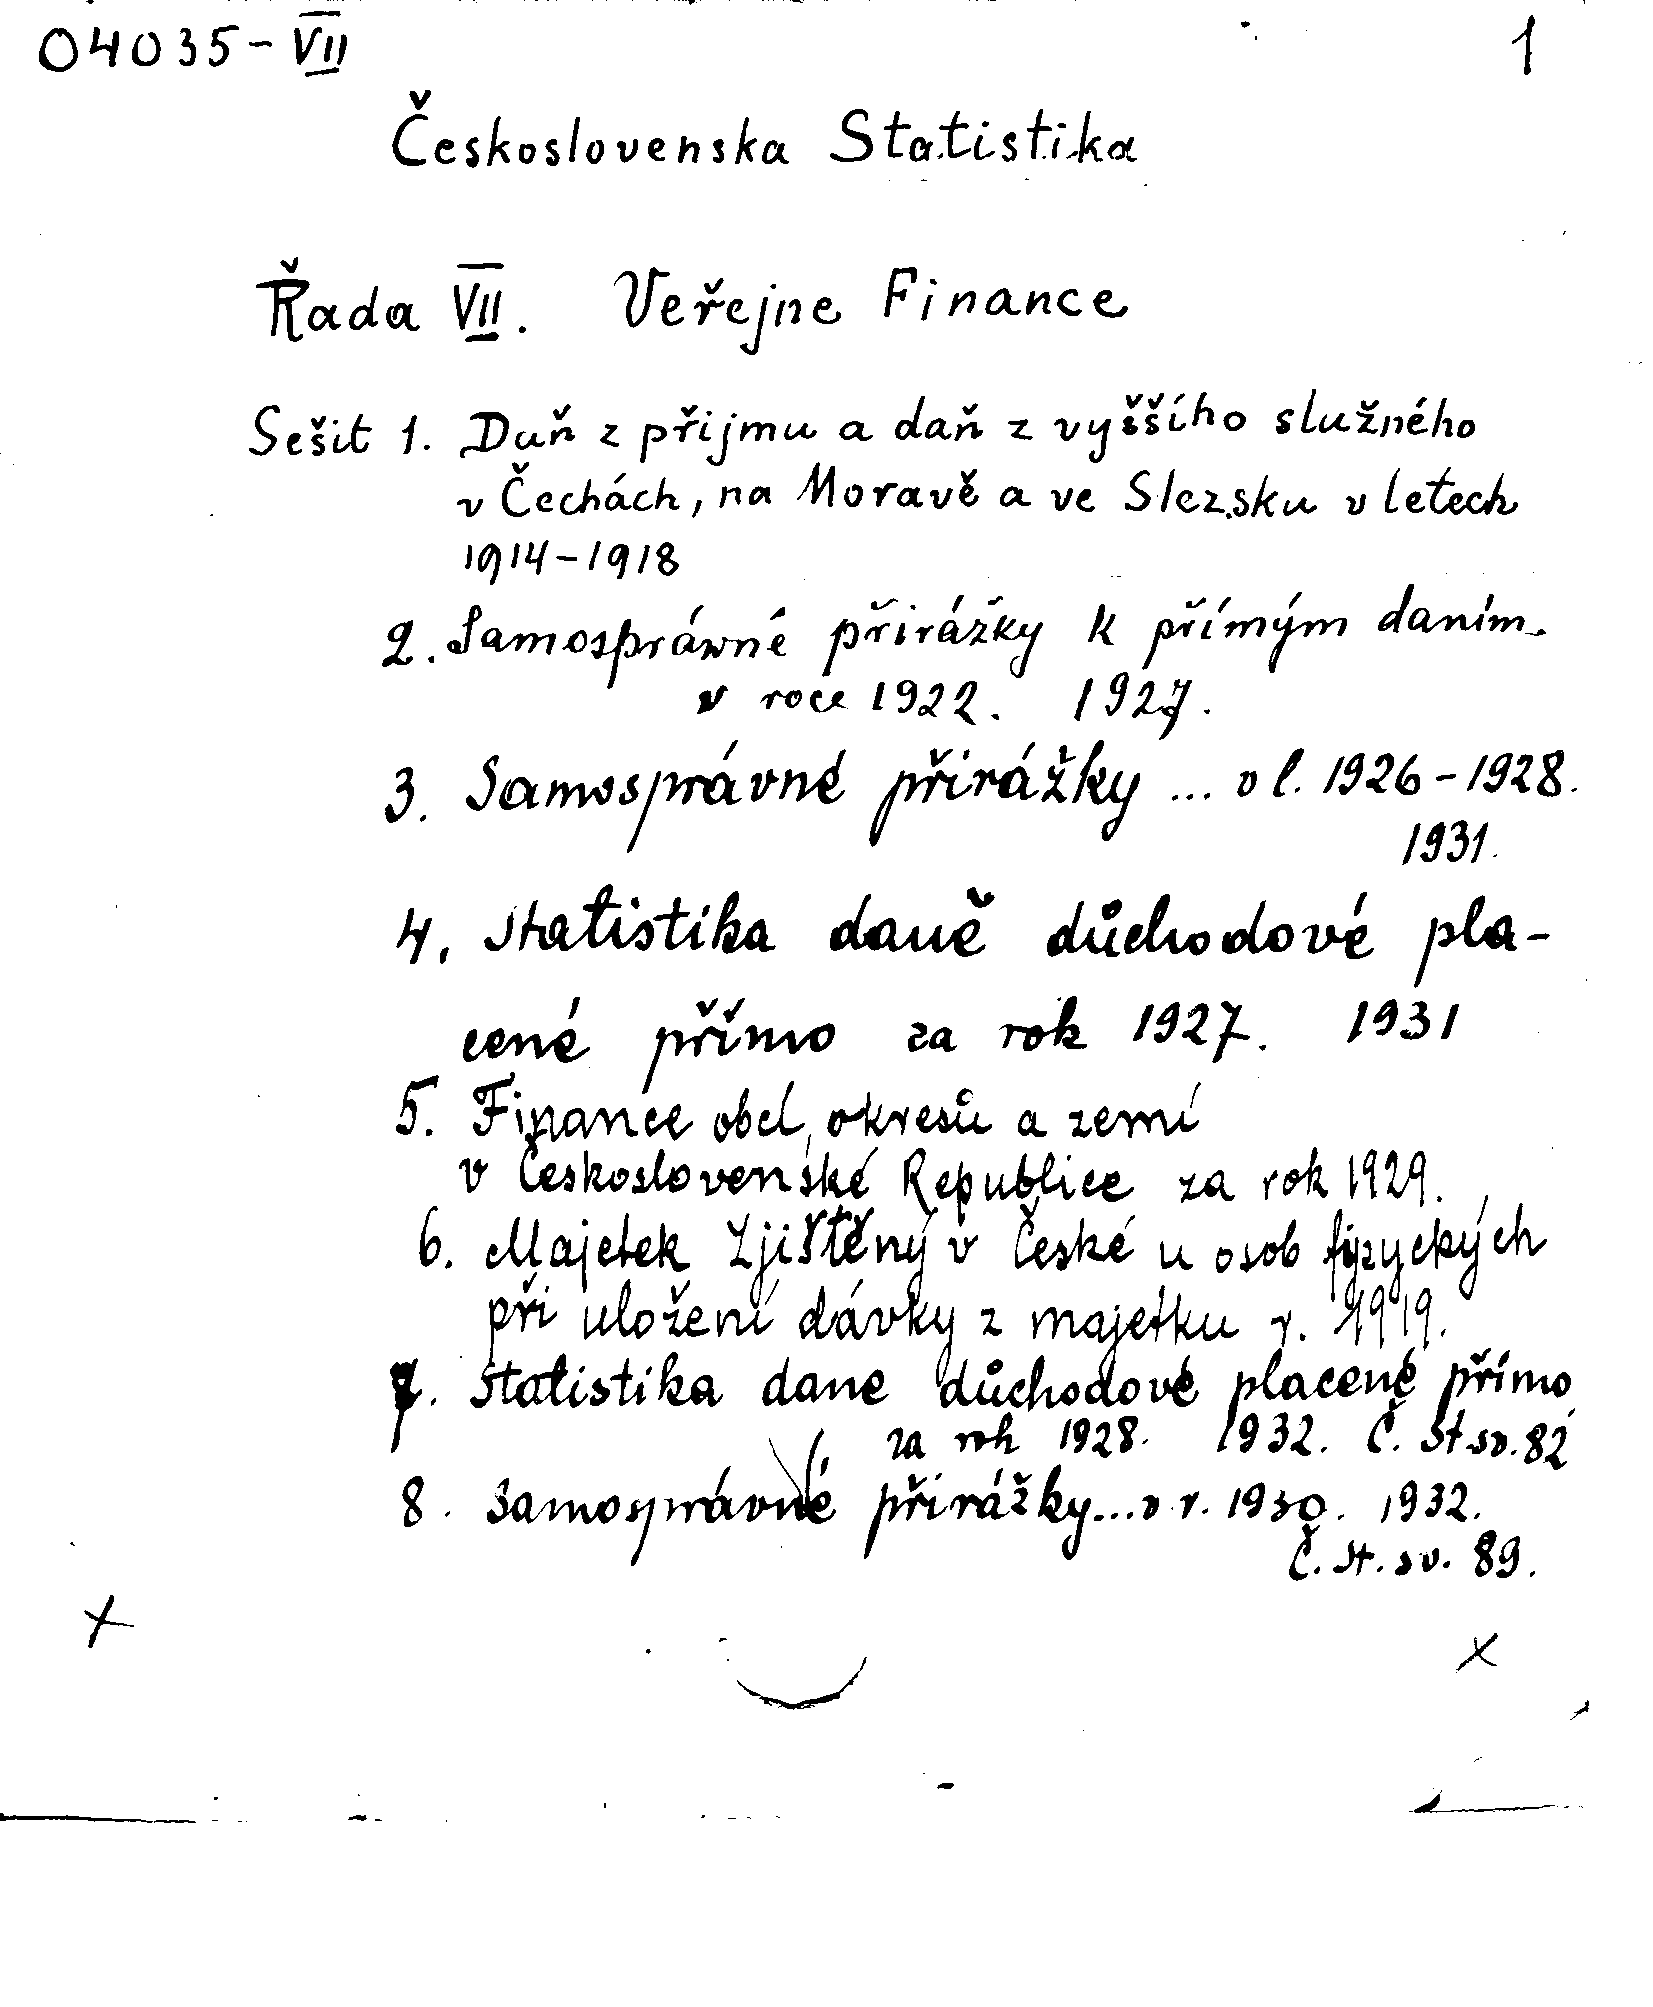 04035-VII
1
Československa Statistika
Řada VII. Veřejne Finance
Sešit 1. Daň z přijmu a daň z vyššího služného
v Čechách, na Moravě a ve Slezsku v letech
1914-1918
2. Samosprávné přirážky k přímým daním.
v roce 1922. 1927.
3. Samosprávné přirážky ... v l. 1926-1928.
1931.
4. Statistika daně důchodové pla-
cené přímo za rok 1927. 1931
5. Finance obcí, okresů a zemí
v Československé Republice za rok 1929.
6. Majetek Zjištěný v České u osob fyzyckých
při uložení dávky z majetku r. 1919.
7. Statistika dane důchodové placené přímo
za rok 1928. 1932. Č. St. sv. 82
8. Samosprávné přirážky... v r. 1930. 1932.
Č. st. sv. 89.